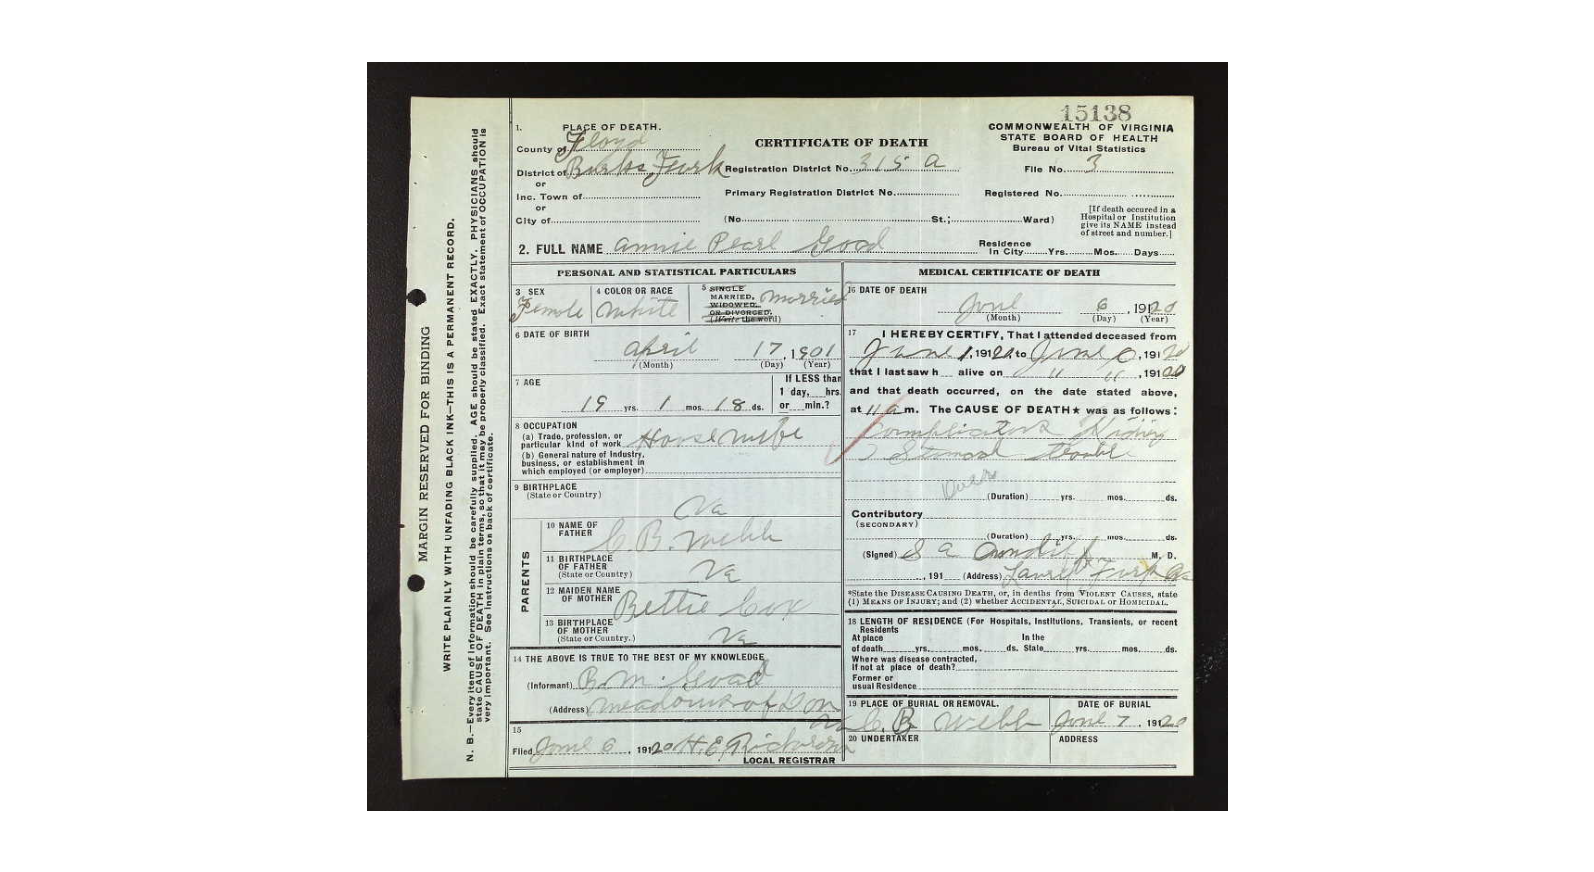 15138
COMMONWEALTH OF VIRGINIA
STATE BOARD OF HEALTH
Bureau of Vital Statistics
CERTIFICATE OF DEATH
1. PLACE OF DEATH.
County of Floyd
District of Burks Furk Registration District No. 315 A File No. 3
or
Inc. Town of Primary Registration District No. Registered No.
or
City of (No. St.; Ward)
[If death occured in a
Hospital or Institution
give its NAME instead
of street and number.]
2. FULL NAME Annie Pearl Goad
Residence
In City Yrs. Mos. Days
PERSONAL AND STATISTICAL PARTICULARS
3 SEX
Female
4 COLOR OR RACE
White
5 SINGLE
MARRIED,
WIDOWED,
OR DIVORCED.
(Write the word)
Married
6 DATE OF BIRTH
April 17, 1901
(Month) (Day) (Year)
7 AGE
19 yrs. 1 mos. 18 ds.
If LESS than
1 day, hrs.
or min.?
8 OCCUPATION
(a) Trade, profession, or
particular kind of work Housewife
(b) General nature of Industry,
business, or establishment in
which employed (or employer)
9 BIRTHPLACE
(State or Country)
Va
PARENTS
10 NAME OF
FATHER
C. B. Webb
11 BIRTHPLACE
OF FATHER
(State or Country)
Va
12 MAIDEN NAME
OF MOTHER
Bettie Cox
13 BIRTHPLACE
OF MOTHER
(State or Country.)
Va
14 THE ABOVE IS TRUE TO THE BEST OF MY KNOWLEDGE
(Informant) B. M. Goad
(Address) Meadows of Dan
Va
15
Filed June 6, 1920 H. E.
LOCAL REGISTRAR
MEDICAL CERTIFICATE OF DEATH
16 DATE OF DEATH
June 6, 1920
(Month) (Day) (Year)
17 I HEREBY CERTIFY, That I attended deceased from
June 1, 1920 to June 6, 1920
that I last saw h alive on " ", 1920
and that death occurred, on the date stated above,
at 11 a m. The CAUSE OF DEATH★ was as follows:
Kidney
Stomach trouble
(Duration) yrs. mos. ds.
Contributory
(SECONDARY)
(Duration) yrs. mos. ds.
(Signed) S A M. D.
, 191 (Address) Laurel Furk Va
*State the DISEASE CAUSING DEATH, or, in deaths from VIOLENT CAUSES, state
(1) MEANS OF INJURY; and (2) whether ACCIDENTAL, SUICIDAL or HOMICIDAL.
18 LENGTH OF RESIDENCE (For Hospitals, Institutions, Transients, or recent
Residents
At place In the
of death yrs. mos. ds. State yrs. mos. ds.
Where was disease contracted,
if not at place of death?
Former or
usual Residence
19 PLACE OF BURIAL OR REMOVAL.
C. B. Webb
DATE OF BURIAL
June 7, 1920
20 UNDERTAKER
ADDRESS
MARGIN RESERVED FOR BINDING
WRITE PLAINLY WITH UNFADING BLACK INK—THIS IS A PERMANENT RECORD.
N. B.—Every item of information should be carefully supplied. AGE should be stated EXACTLY. PHYSICIANS should
state CAUSE OF DEATH in plain terms, so that it may be properly classified. Exact statement of OCCUPATION is
very important. See instructions on back of certificate.